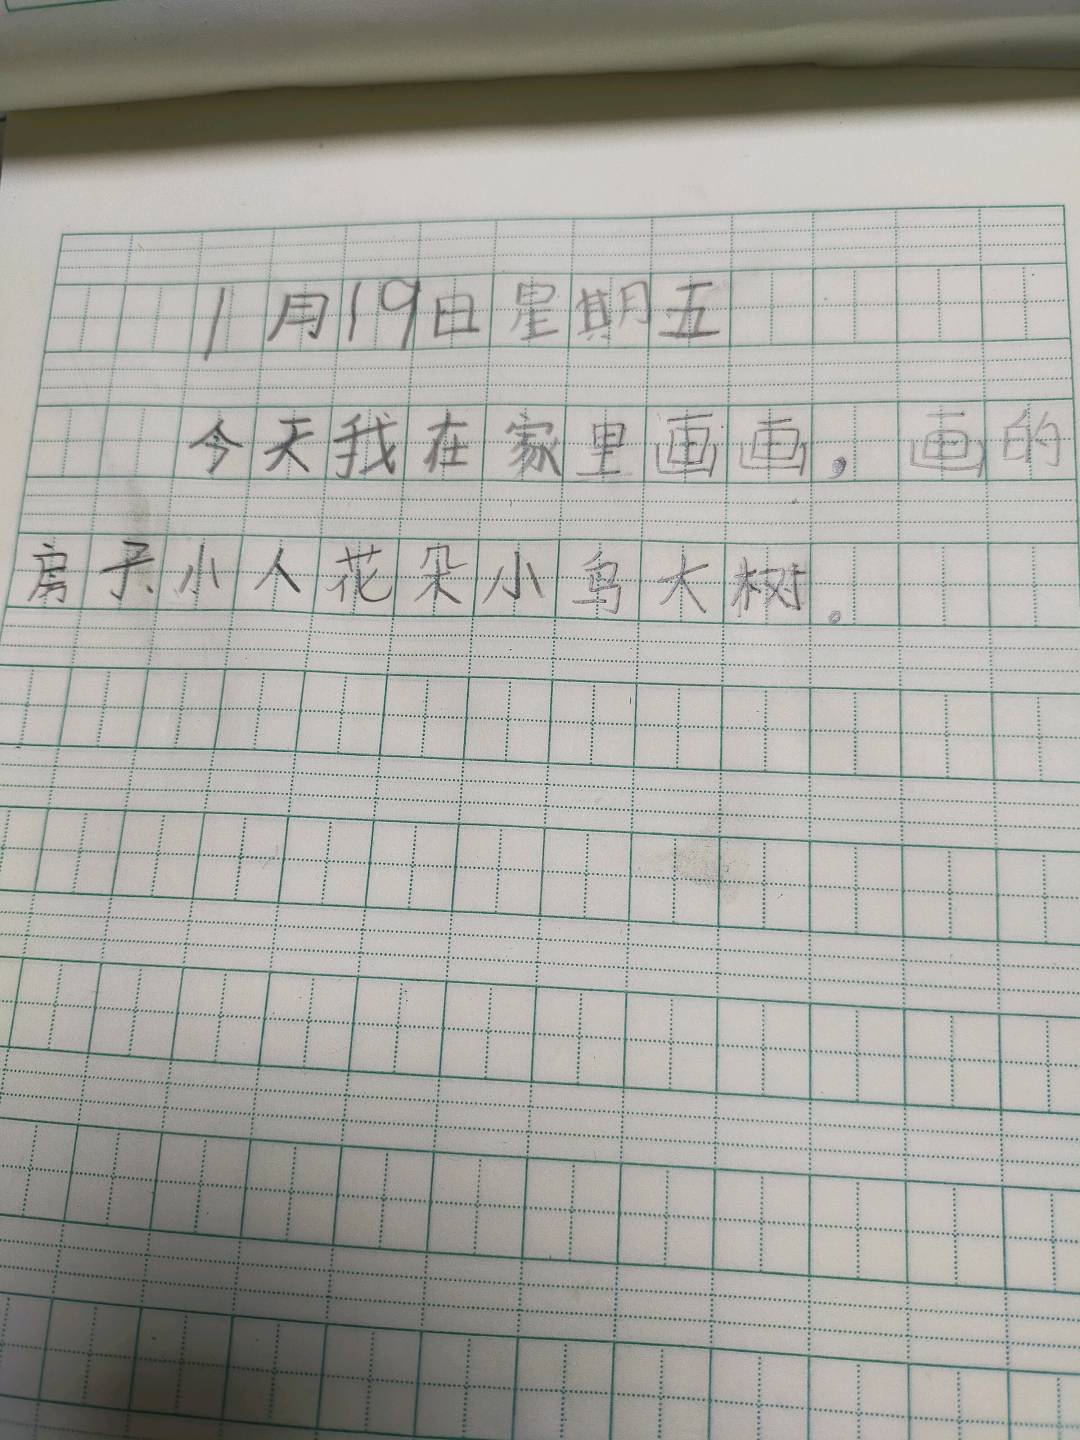 1月19日星期五
今天我在家里画画，画的
房子小人花朵小鸟大树。